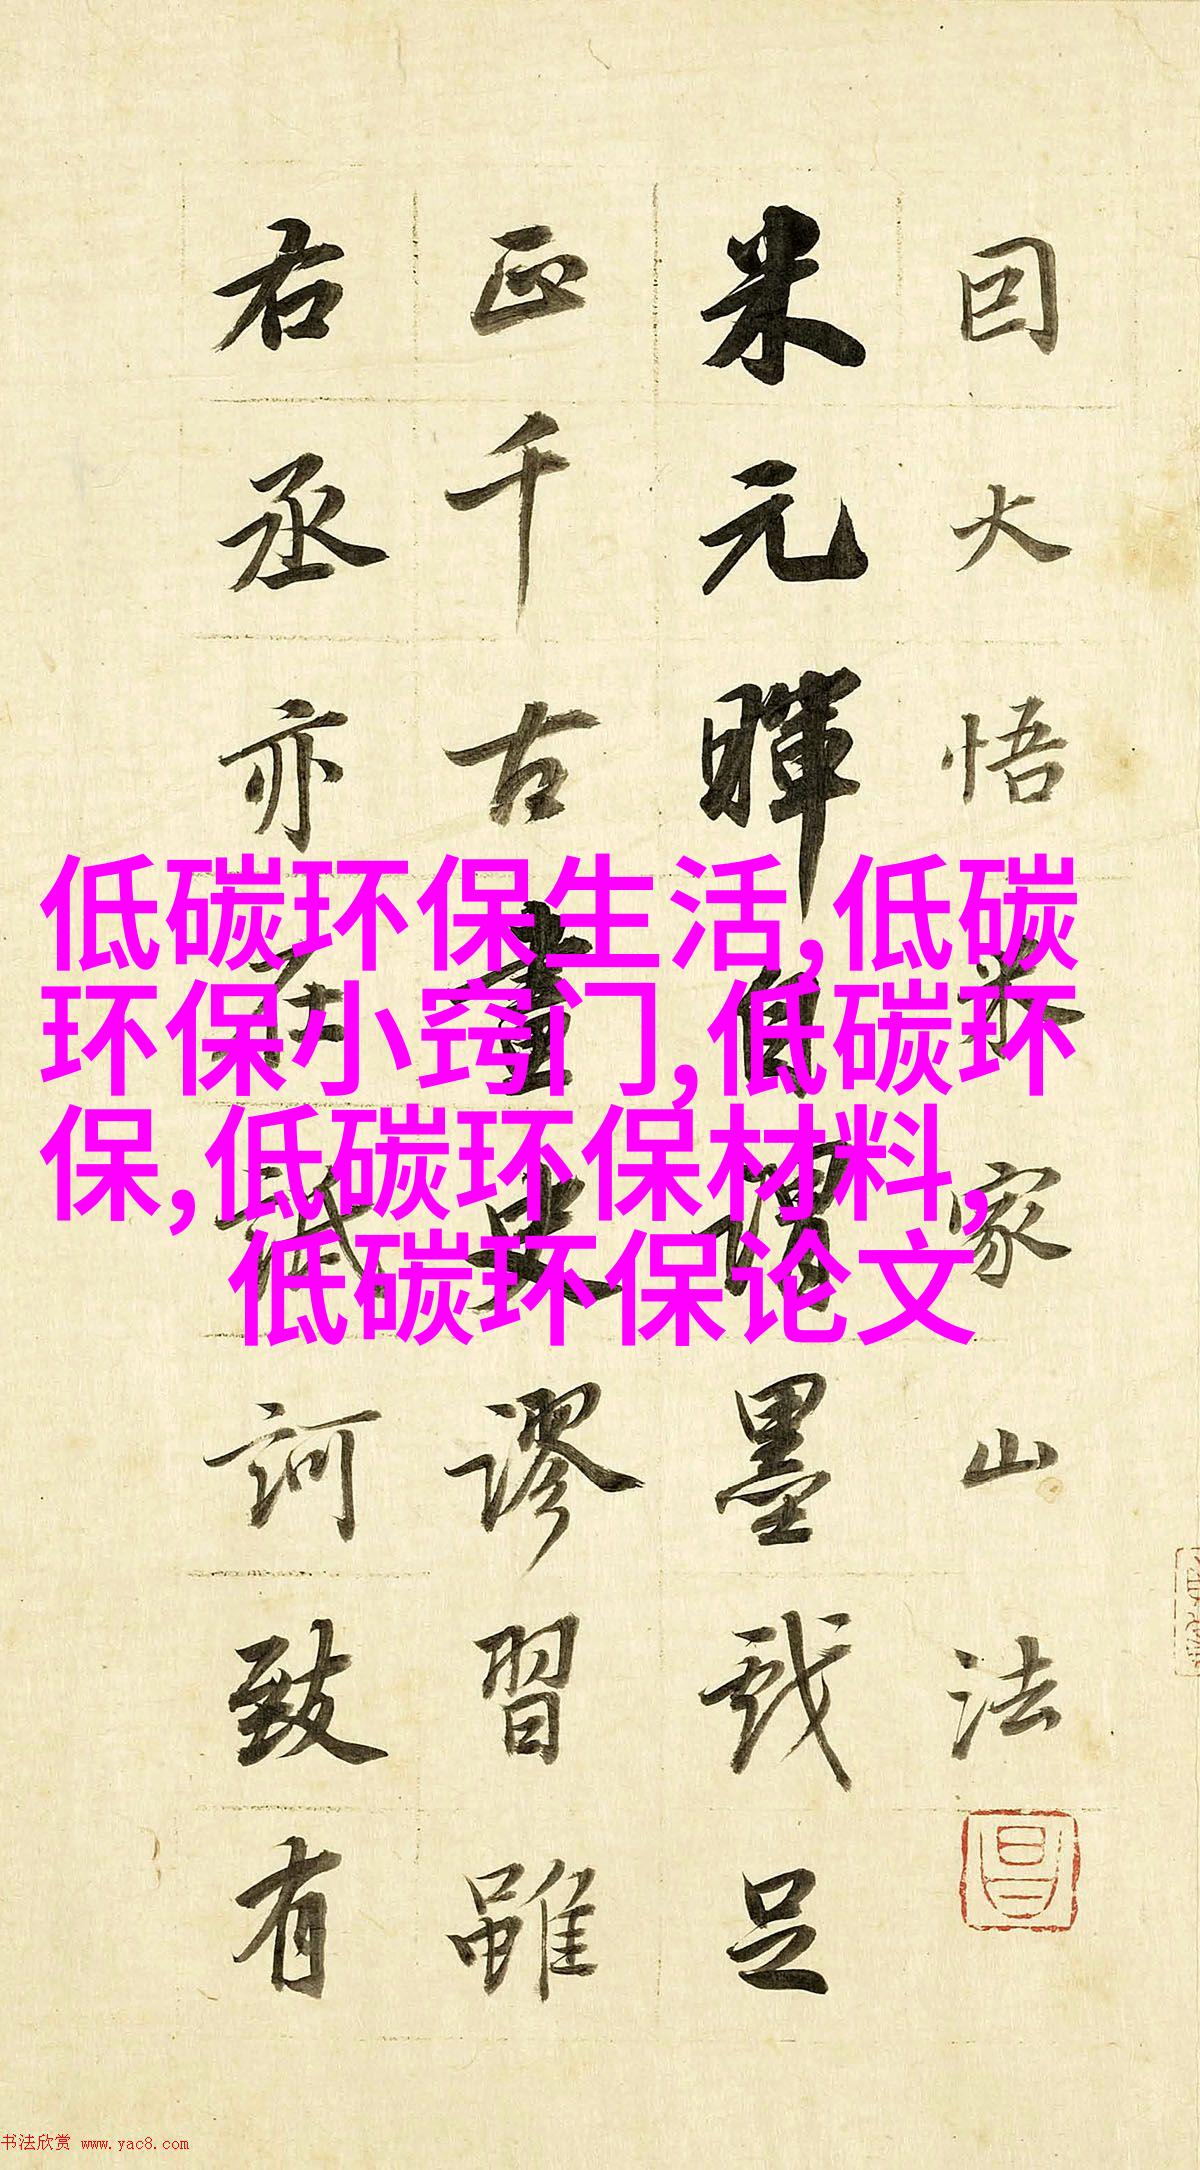 囙大悟米家山法
米元暉自謂墨戲足
正千古畫史謬習雖
右丞亦在詆訶致有
低碳环保生活,低碳
环保小窍门,低碳环
保,低碳环保材料,
低碳环保论文
书法欣赏 www.yac8.com